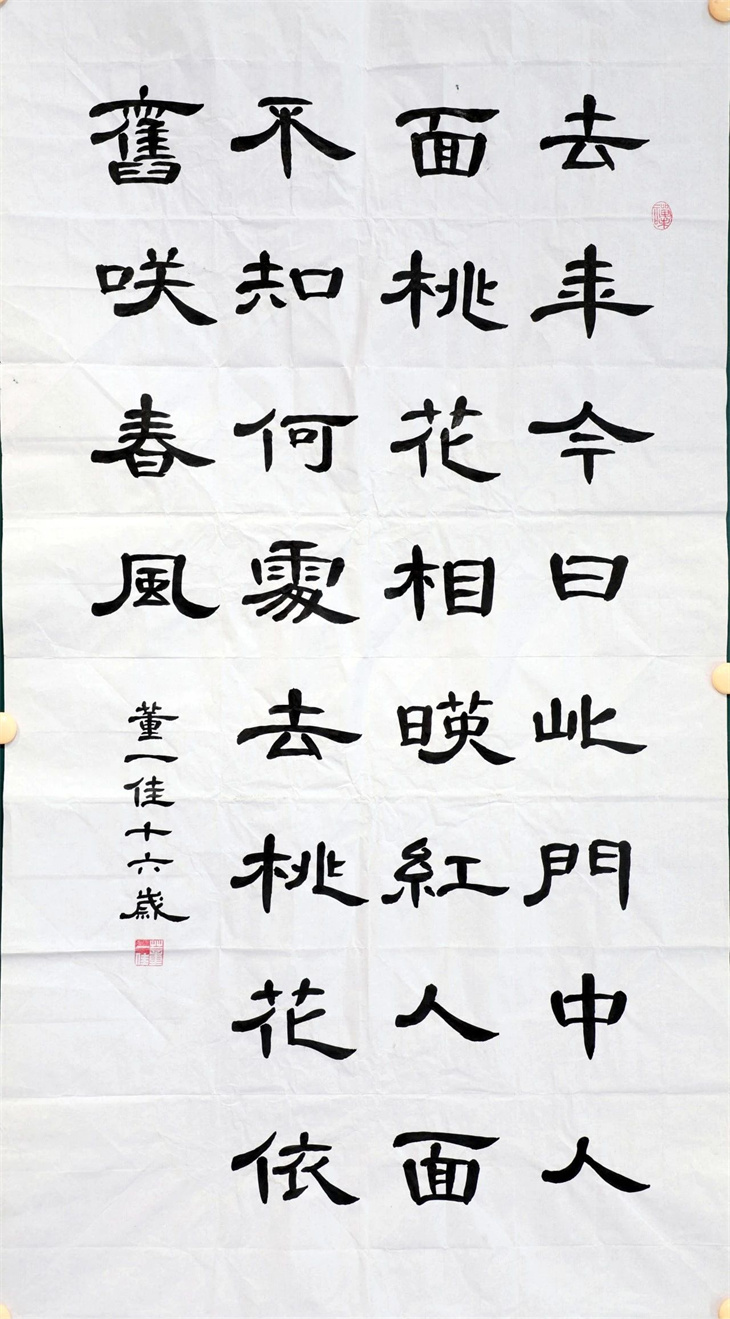 去年今日此門中人
面桃花相暎紅人面
不知何處去桃花依
舊咲春風
董一佳十六歲